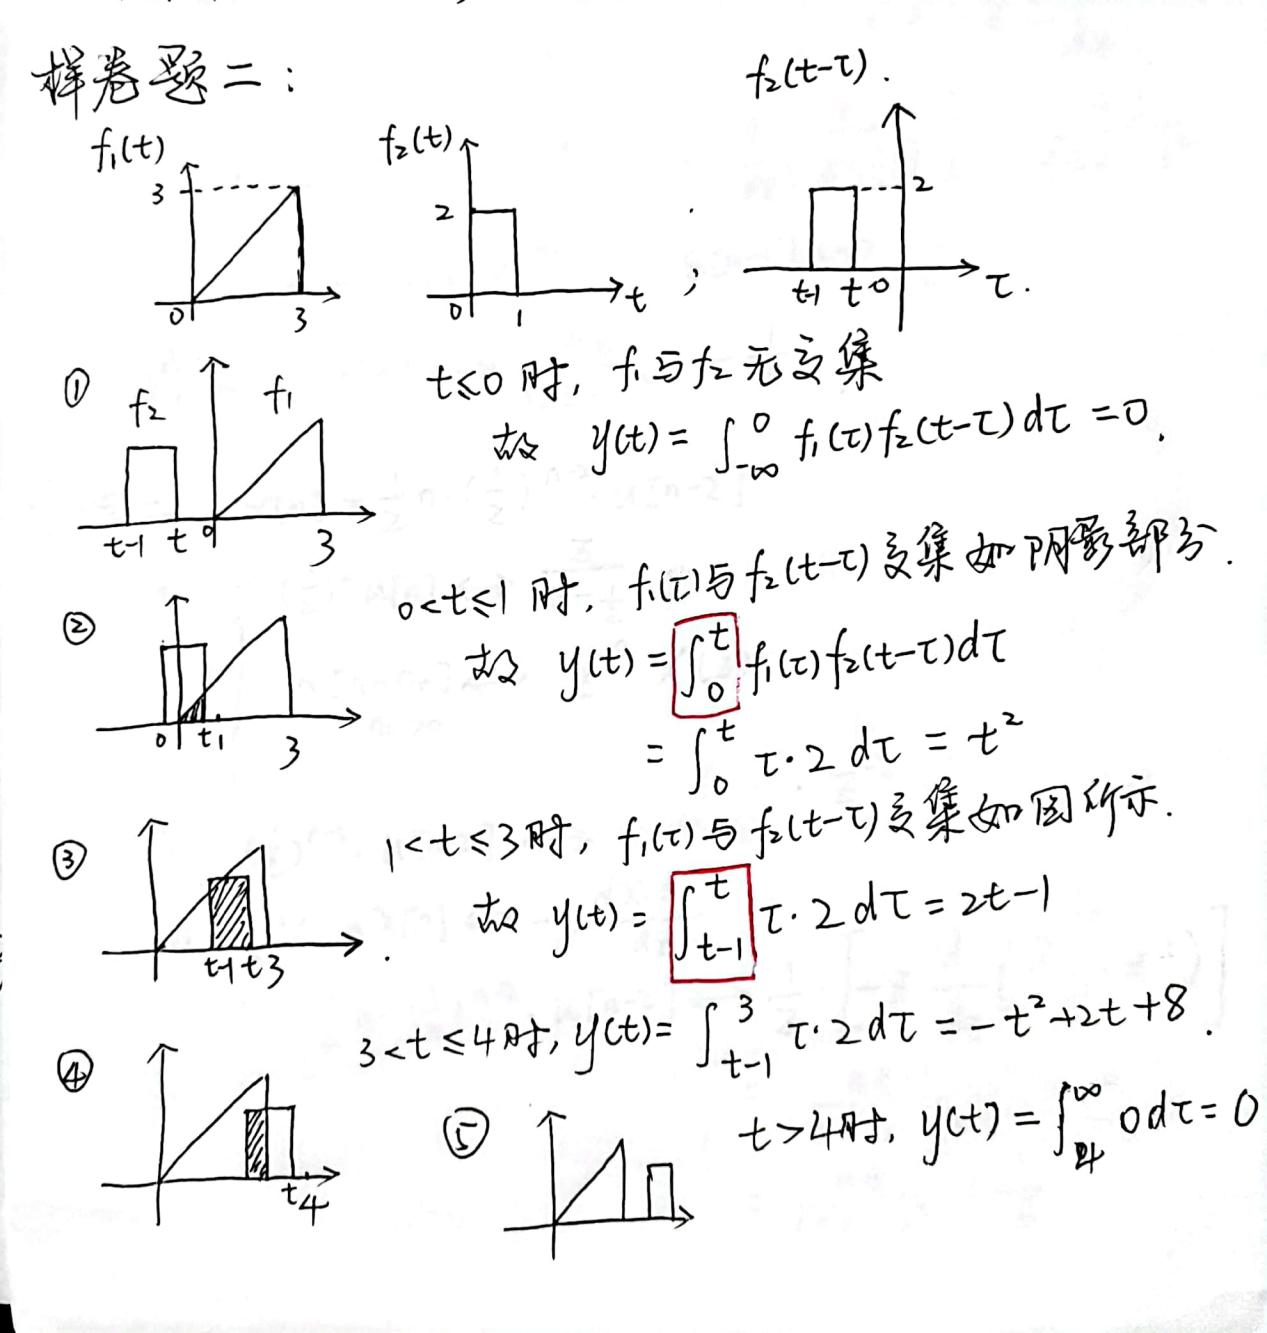 样卷题二：
f₁(t)
3
0
3
f₂(t)
2
0
1
t
;
f₂(t-τ).
2
t-1
t
0
τ.
①
f₂
f₁
t-1
t
0
3
t≤0 时, f₁与f₂无交集
故 y(t) = ∫_{-∞}^{0} f₁(τ)f₂(t-τ)dτ = 0.
②
0
t
1
3
0<t≤1 时, f₁(τ)与f₂(t-τ)交集如阴影部分.
故 y(t) = ∫_{0}^{t} f₁(τ)f₂(t-τ)dτ
= ∫_{0}^{t} τ·2 dτ = t²
③
t-1
t
3
1<t≤3时, f₁(τ)与f₂(t-τ)交集如图所示.
故 y(t) = ∫_{t-1}^{t} τ·2 dτ = 2t-1
④
t
4
3<t≤4时, y(t) = ∫_{t-1}^{3} τ·2 dτ = -t²+2t+8.
⑤
t>4时, y(t) = ∫_{4}^{∞} 0 dτ = 0